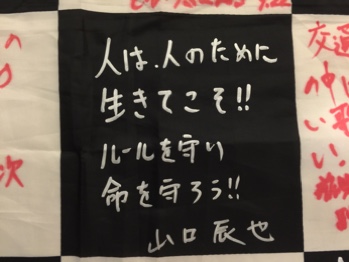 人は、人のために
生きてこそ!!
ルールを守り
命を守ろう!!
山口辰也
交通
次